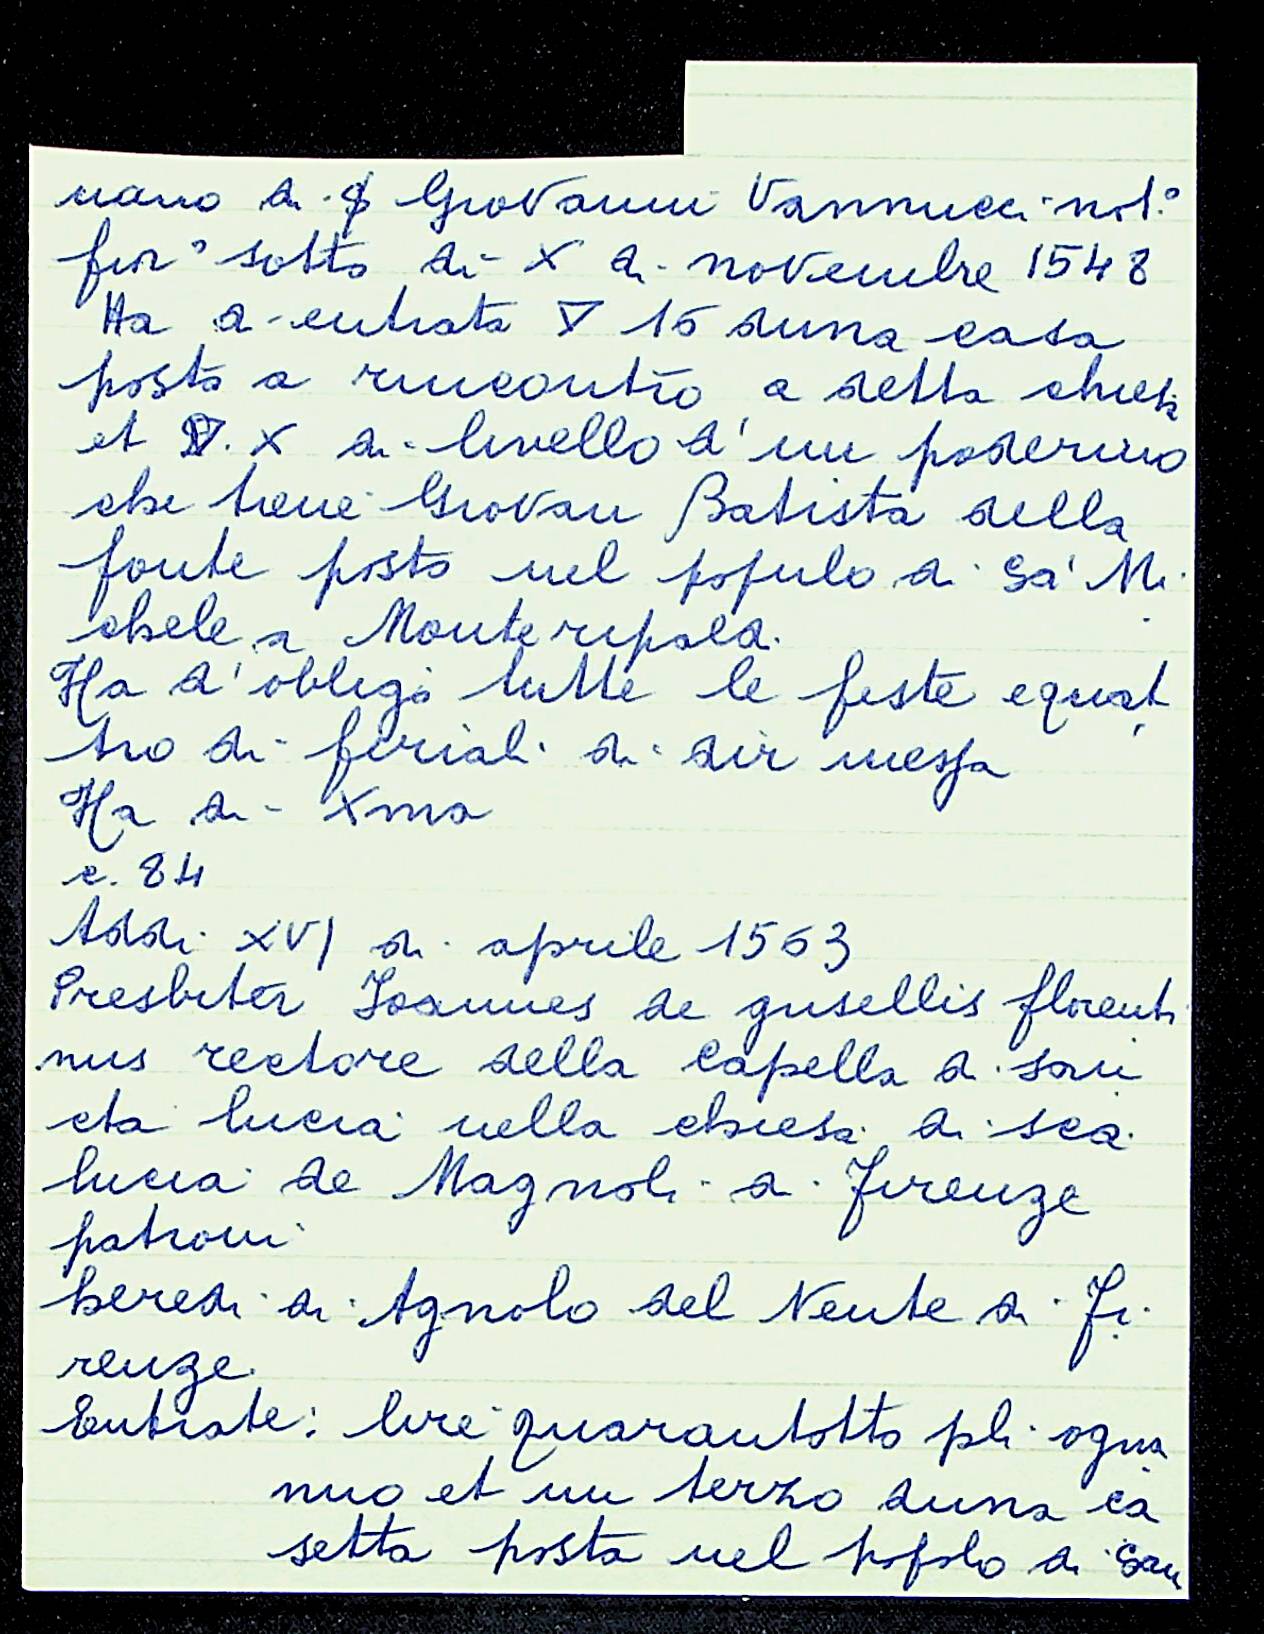 mano di S Giovanni Vannucci not.°
fior° sotto di X di novembre 1548
Ha d'entrata ∇ 16 duna casa
posta a rincontro a detta chiesa
et ∇. X di livello d'un poderino
che tiene Giovan Batista della
fonte posto nel popolo di Sa' Mi
chele a Monteripaldi
Ha d'obligo tutte le feste equat
tro di feriali di dir messa
Ha di Xma
c. 84
Addi XVI di aprile 1563
Presbiter Joannes de gusellis florenti
nus rectore della Capella di san
cta lucia nella chiesa di sca
lucia de Magnoli di Firenze
patroni
heredi di Agnolo del Nente di Fi
renze
Entrate: lire quarantotto pli ogna
nno et un terzo duna ca
setta posta nel popolo di San